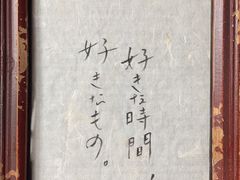 好きな時間、
好きなもの。